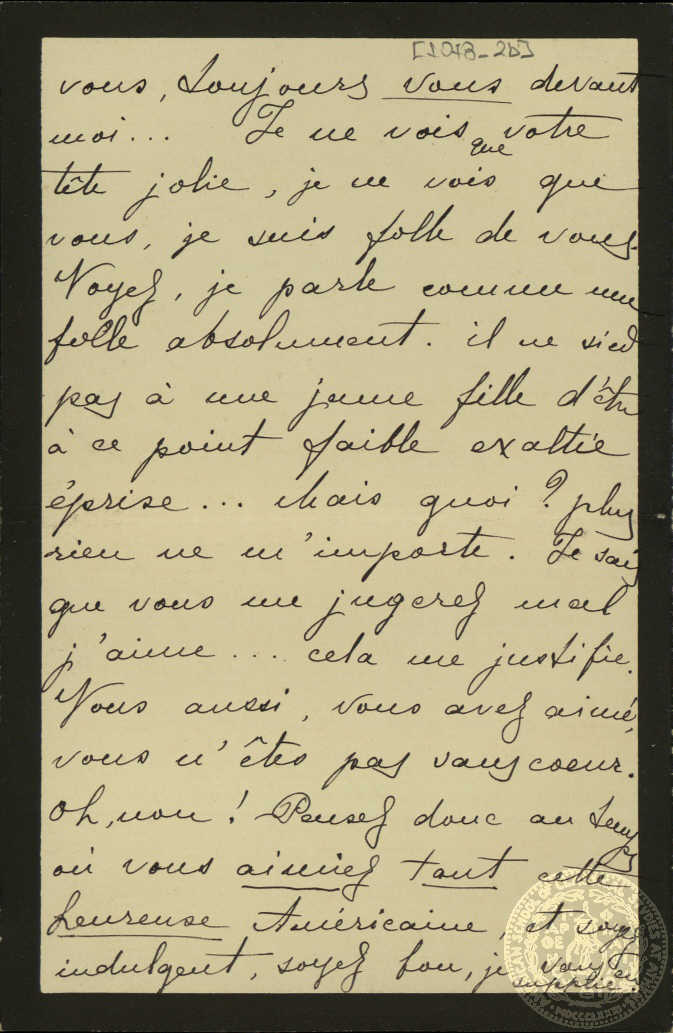 [1078-2b]
vous, toujours vous devant
moi... Je ne vois que votre
tête jolie, je ne vois que
vous, je suis folle de vous.
Voyez, je parle comme une
folle absolument. il ne sied
pas à une jeune fille d'être
à ce point faible exaltée
éprise... Mais quoi? plus
rien ne m'importe. Je sais
que vous me jugerez mal
j'aime... cela me justifie.
Vous aussi, vous avez aimé,
vous n'êtes pas sans coeur.
Oh, non! Pensez donc au temps
où vous aimiez tant cette
heureuse Américaine, et soyez
indulgent, soyez bon, je vous en
supplie.